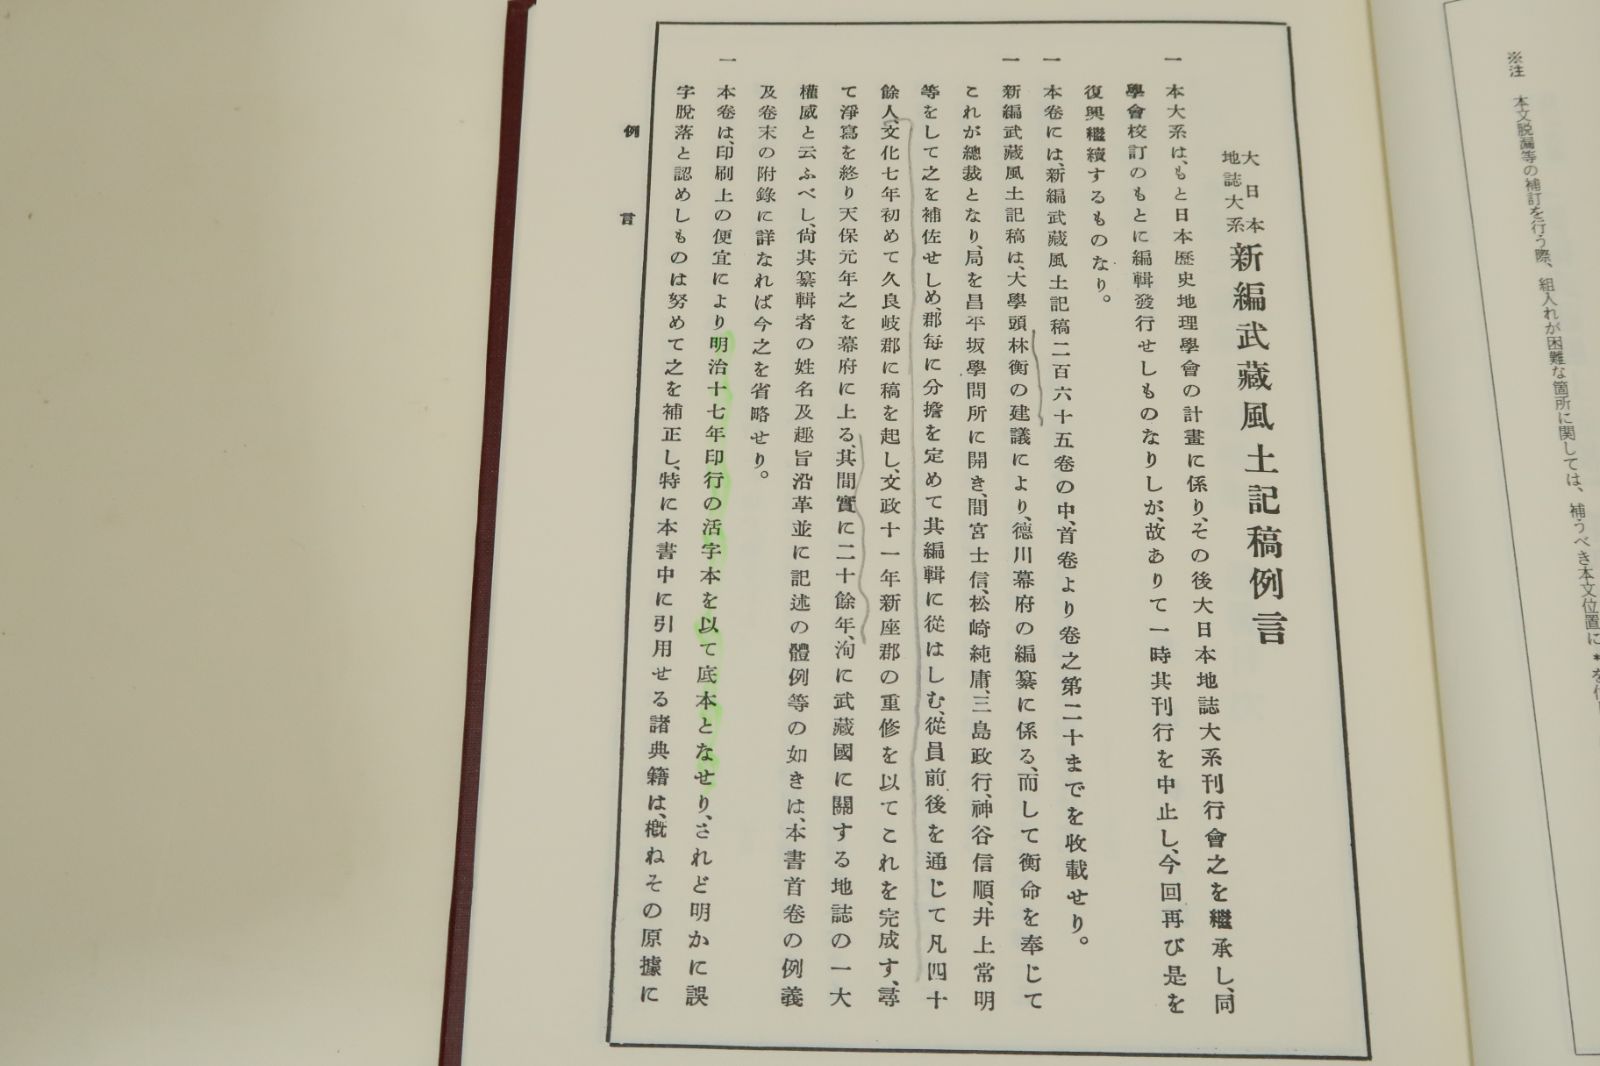 ※注　本文脱漏等の補訂を行う際、組入れが困難な箇所に関しては、補うべき本文位置に
大日本地誌大系 新編武藏風土記稿例言
一 本大系は、もと日本歷史地理學會の計畫に係り、その後大日本地誌大系刊行會之を繼承し、同
學會校訂のもとに編輯發行せしものなりしが、故ありて一時其刊行を中止し、今回再び是を
復興繼續するものなり。
一 本卷には、新編武藏風土記稿二百六十五卷の中、首卷より卷之第二十までを收載せり。
一 新編武藏風土記稿は、大學頭林衡の建議により、德川幕府の編纂に係る、而して衡命を奉じて
これが總裁となり、局を昌平坂學問所に開き、間宮士信、松崎純庸、三島政行、神谷信順、井上常明
等をして之を補佐せしめ、郡每に分擔を定めて其編輯に從はしむ、從員前後を通じて凡四十
餘人、文化七年初めて久良岐郡に稿を起し、文政十一年新座郡の重修を以てこれを完成す、尋
て淨寫を終り天保元年之を幕府に上る、其間實に二十餘年、洵に武藏國に關する地誌の一大
權威と云ふべし、尙其纂輯者の姓名及趣旨沿革並に記述の體例等の如きは、本書首卷の例義
及卷末の附錄に詳なれば今之を省略せり。
一 本卷は、印刷上の便宜により明治十七年印行の活字本を以て底本となせり、されど明かに誤
字脫落と認めしものは努めて之を補正し、特に本書中に引用せる諸典籍は、槪ねその原據に
例言